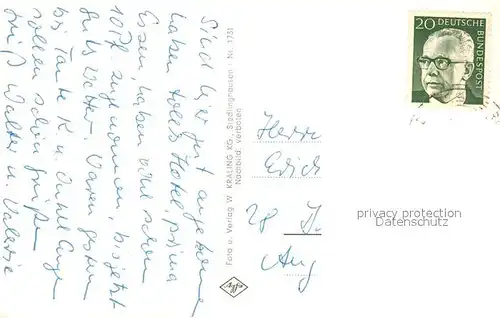 Sind hier gut angekommen
haben tolles Hotel, prima
Essen, haben schon
10 Pf. zugenommen, bis jetzt
gutes Wetter. Waren gestern
bei Tante K u. Onkel
sollen schön grüßen
Walter u. Valerie
Foto u. Verlag W. KRALING KG., Siedlinghausen · Nr. 1731
Nachbild. verboten
effp
20 DEUTSCHE
BUNDESPOST
Herrn
Erich
28
Aug
privacy protection
Datenschutz